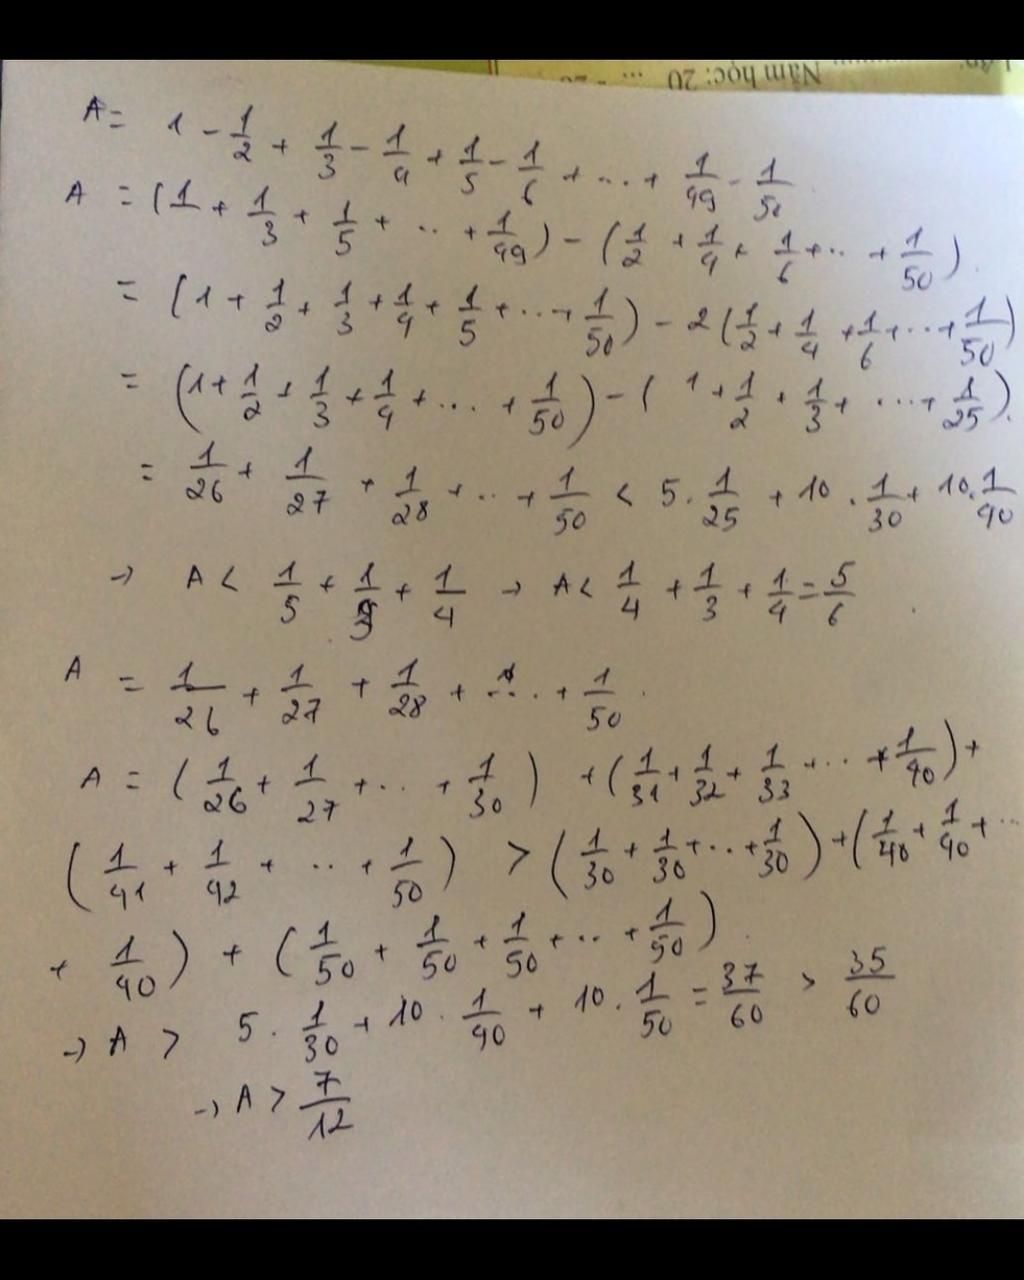 Năm học: 20 ...
A = 1 - 1/2 + 1/3 - 1/4 + 1/5 - 1/6 + ... + 1/49 - 1/50
A = (1 + 1/3 + 1/5 + ... + 1/49) - (1/2 + 1/4 + 1/6 + ... + 1/50).
= (1 + 1/2 + 1/3 + 1/4 + 1/5 + ... + 1/50) - 2(1/2 + 1/4 + 1/6 + ... + 1/50)
= (1 + 1/2 + 1/3 + 1/4 + ... + 1/50) - (1 + 1/2 + 1/3 + ... + 1/25).
= 1/26 + 1/27 + 1/28 + ... + 1/50 < 5 . 1/25 + 10 . 1/30 + 10 . 1/40
→ A < 1/5 + 1/3 + 1/4 → A < 1/4 + 1/3 + 1/4 = 5/6.
A = 1/26 + 1/27 + 1/28 + ... + 1/50.
A = (1/26 + 1/27 + ... + 1/30) + (1/31 + 1/32 + 1/33 + ... + 1/40) +
(1/41 + 1/42 + ... + 1/50) > (1/30 + 1/30 + ... + 1/30) + (1/40 + 1/40 + ...
+ 1/40) + (1/50 + 1/50 + 1/50 + ... + 1/50).
→ A > 5 . 1/30 + 10 . 1/40 + 10 . 1/50 = 37/60 > 35/60
→ A > 7/12